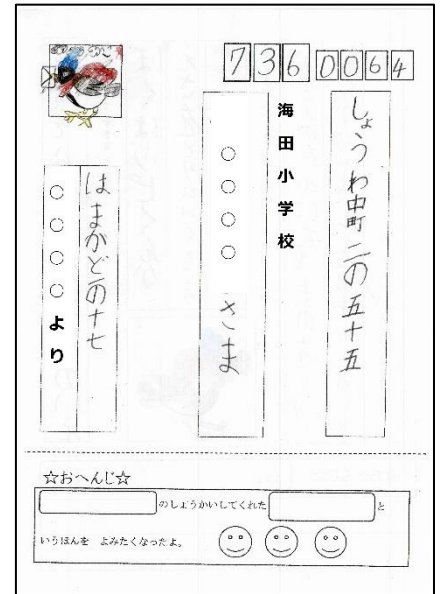 7360064
しょうわ中町二の五十五
海田小学校
○○○○ さま
はまかどの十七
○○○○ より
☆おへんじ☆
のしょうかいしてくれた と
いうほんを よみたくなったよ。